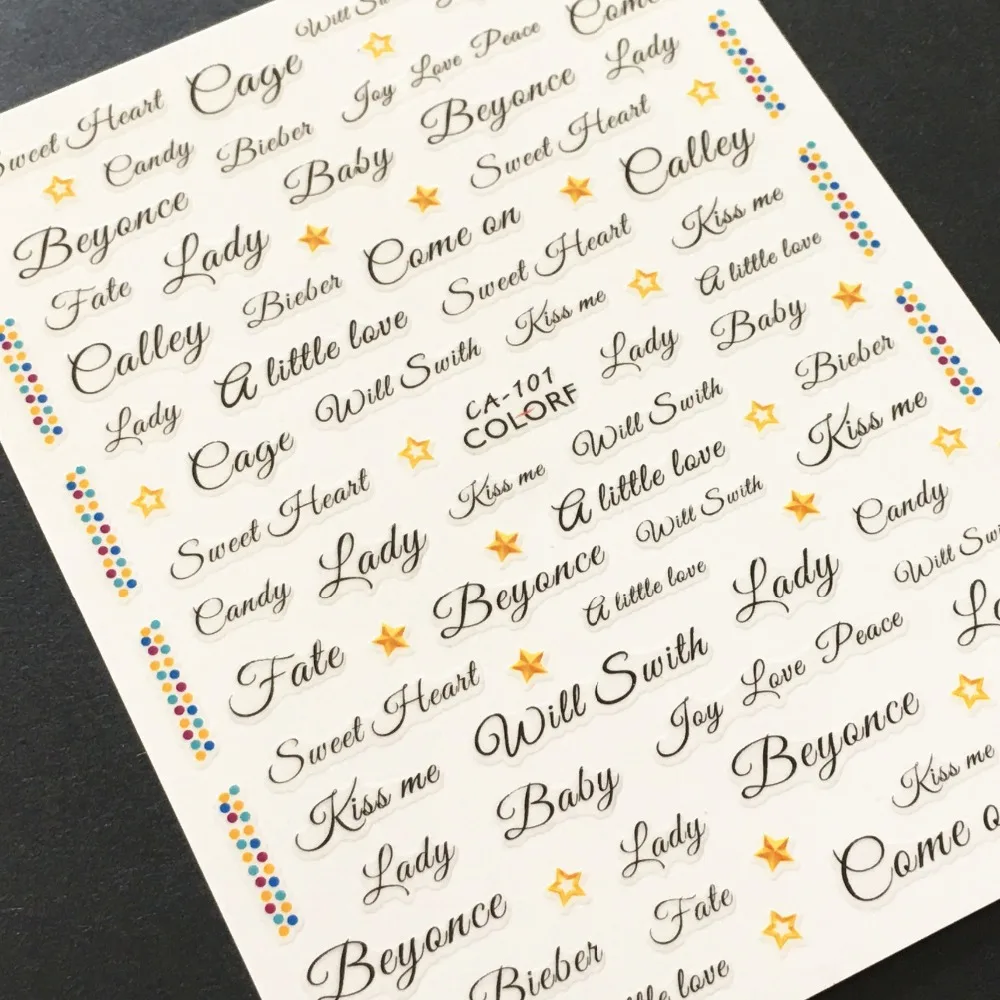 Will Sw
Come
Sweet Heart Cage Joy Love Peace Lady
Candy Bieber Beyonce
Beyonce Baby Sweet Heart Calley
Fate Lady Come on Kiss me
Calley Bieber Sweet Heart A little love
Lady A little love Kiss me Baby
Cage Will Swith Lady Bieber
CA-101
COLORF
Sweet Heart Kiss me Will Swith Kiss me
Candy Lady A little love Candy
Beyonce Will Swith Will Sw
Fate A little love Lady
Sweet Heart Will Swith Joy Love Peace
Kiss me Baby Beyonce Kiss me
Lady Lady Come o
Beyonce Fate
Bieber
ttle love